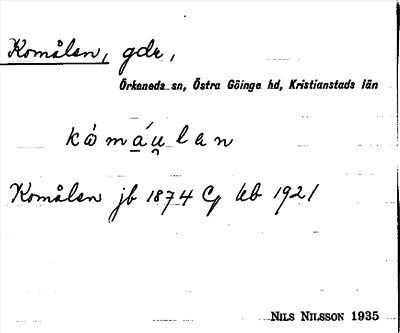 Komålen, gdr,
Örkeneds sn, Östra Göinge hd, Kristianstads län
Komålen jb 1874 kb 1921
NILS NILSSON 1935